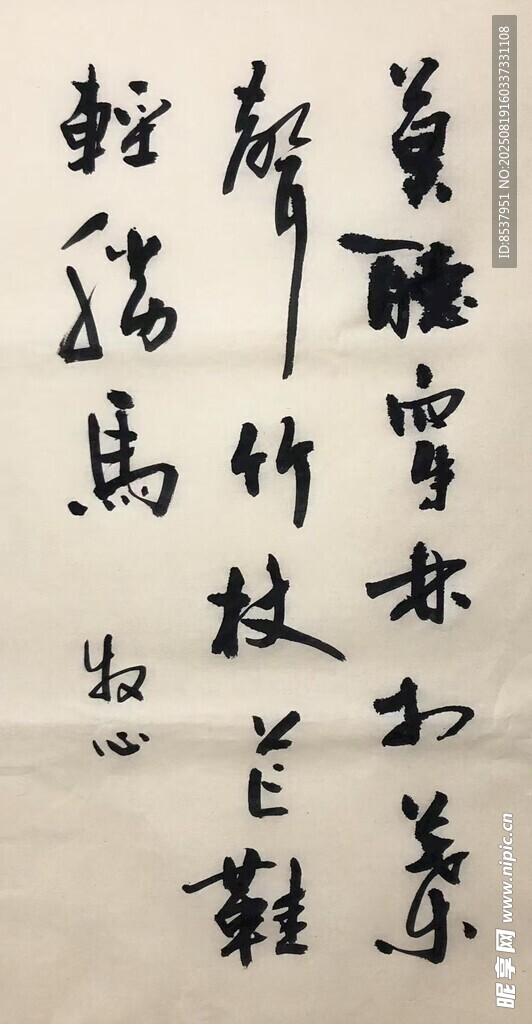 莫聽穿林打葉
聲竹杖芒鞋
輕勝馬
牧心
ID:8537951 NO:20250819160337331108
昵享网 www.nipic.cn